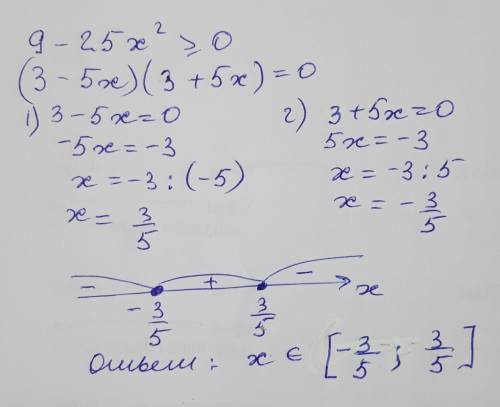 9 - 25x² ≥ 0
(3 - 5x)(3 + 5x) = 0
1) 3 - 5x = 0
-5x = -3
x = -3 : (-5)
x = 3/5
2) 3 + 5x = 0
5x = -3
x = -3 : 5
x = - 3/5
- + - x
- 3/5 3/5
Ответ: x ∈ [-3/5 ; 3/5]